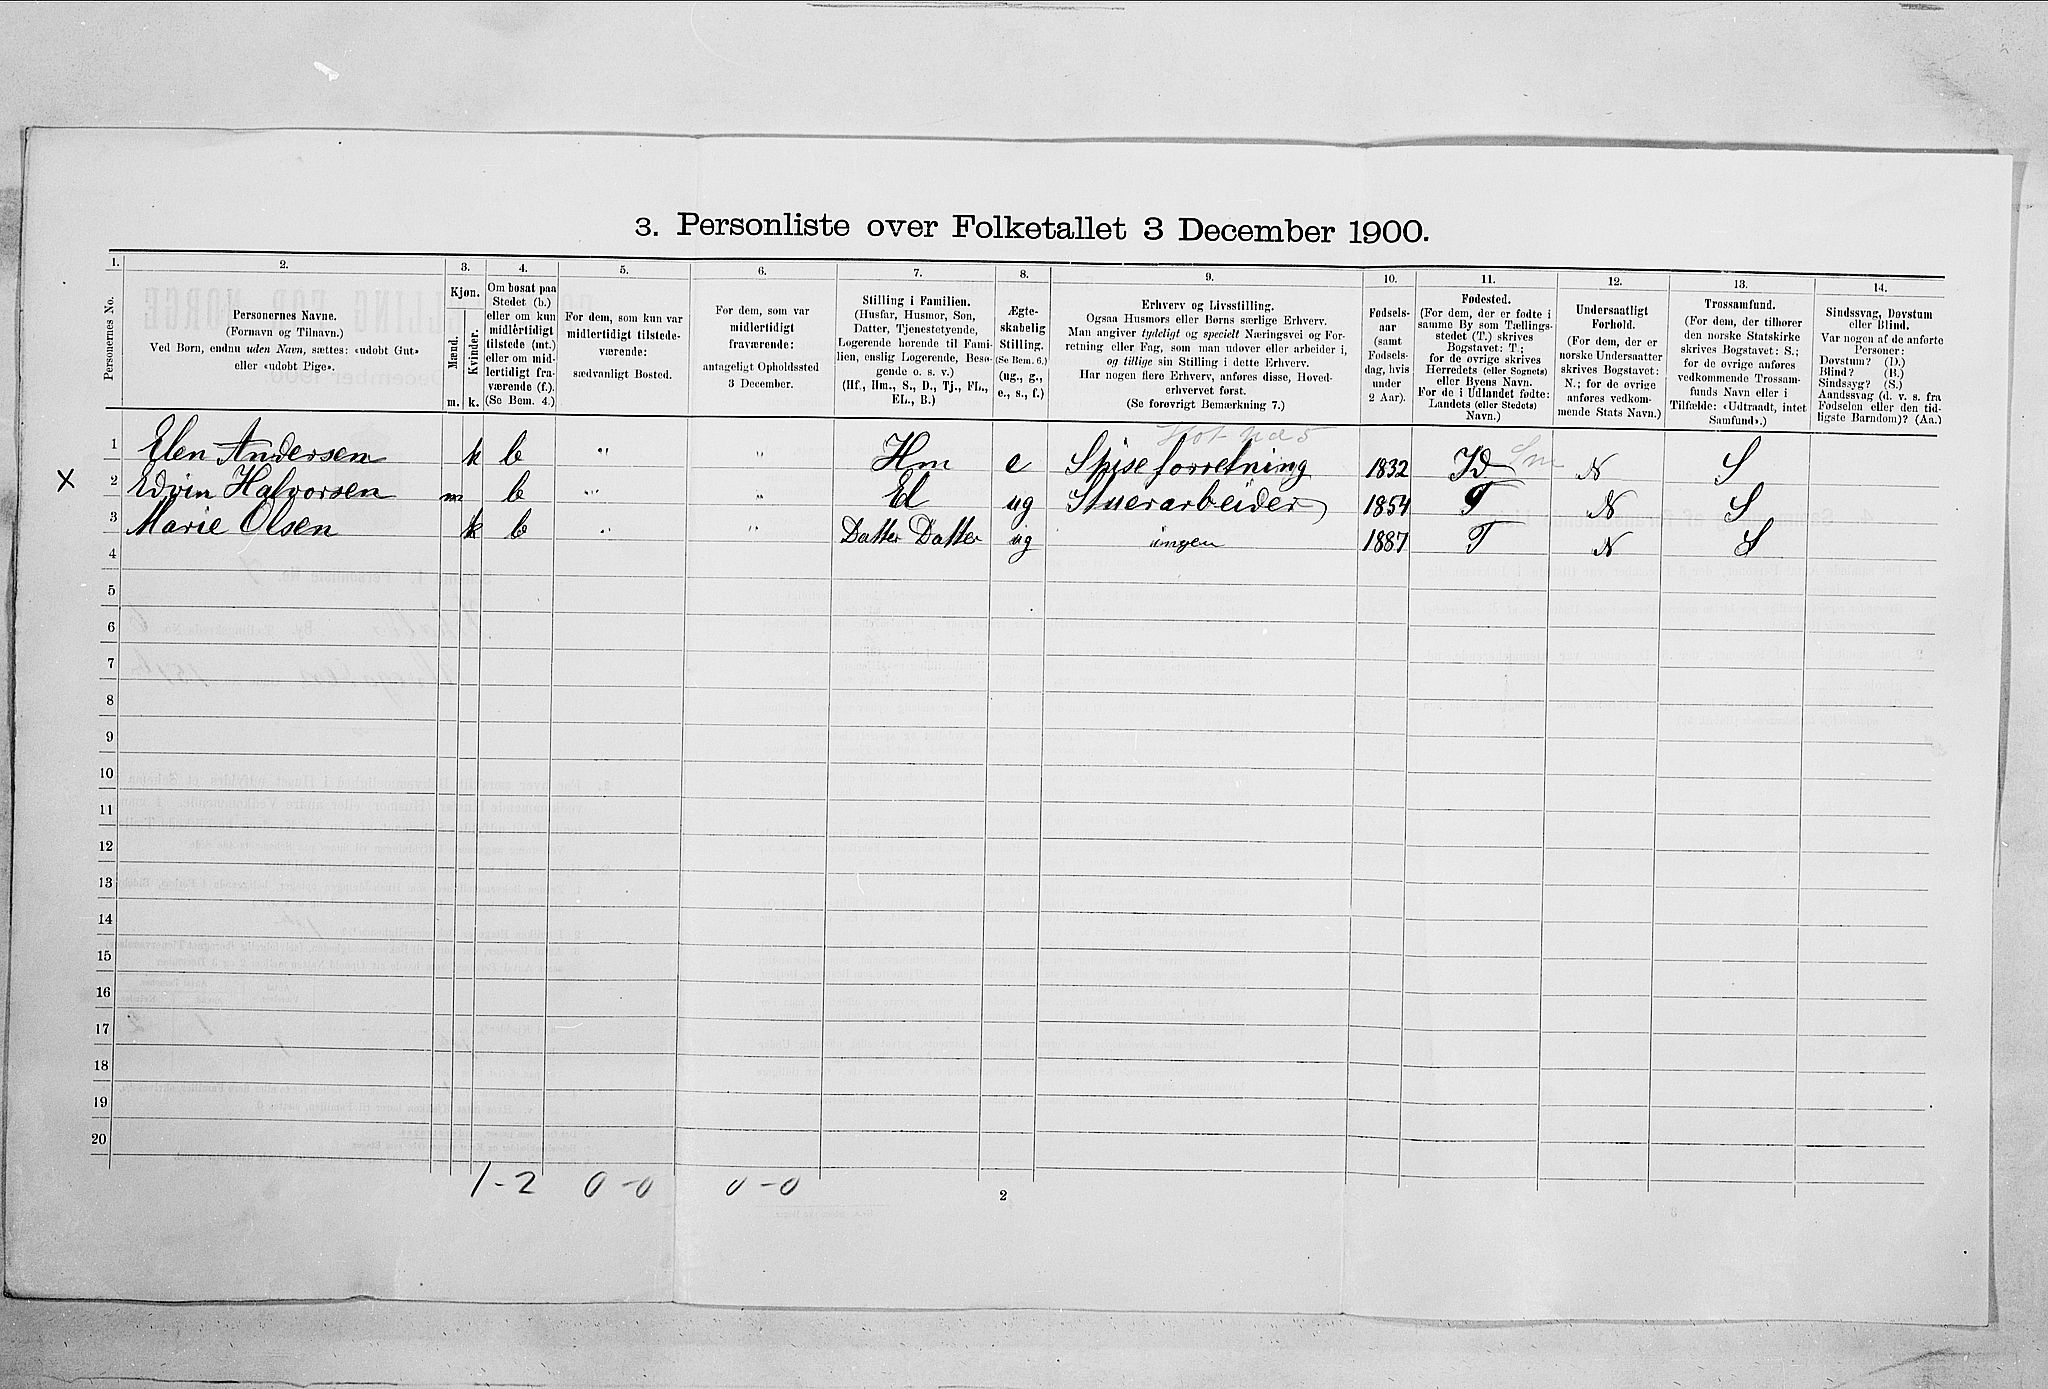 3. Personliste over Folketallet 3 December 1900.
1. 2. 3. 4. 5. 6. 7. 8. 9. 10. 11. 12. 13. 14.
Personernes No.
Personernes Navne.
(Fornavn og Tilnavn.)
Ved Børn, endnu uden Navn, sættes: «udøbt Gut»
eller «udøbt Pige».
Kjøn.
Mænd.
Kvinder.
m. k.
Om bosat paa
Stedet (b.)
eller om kun
midlertidigt
tilstede (mt.)
eller om mid-
lertidigt fra-
værende (f.).
(Se Bem. 4.)
For dem, som kun var
midlertidigt tilstede-
værende:
sædvanligt Bosted.
For dem, som var
midlertidigt
fraværende:
antageligt Opholdssted
3 December.
Stilling i Familien.
(Husfar, Husmor, Søn,
Datter, Tjenestetyende,
Logerende hørende til Fami-
lien, enslig Logerende, Besø-
gende o. s. v.)
(Hf., Hm., S., D., Tj., FL.,
EL., B.)
Ægte-
skabelig
Stilling.
(Se Bem. 6.)
(ug., g.,
e., s., f.)
Erhverv og Livsstilling.
Ogsaa Husmors eller Børns særlige Erhverv.
Man angiver tydeligt og specielt Næringsvei og For-
retning eller Fag, som man udøver eller arbeider i,
og tillige sin Stilling i dette Erhverv.
Har nogen flere Erhverv, anføres disse, Hoved-
erhvervet først.
(Se forøvrigt Bemærkning 7.)
Fødsels-
aar
(samt
Fødsels-
dag, hvis
under
2 Aar).
Fødested.
(For dem, der er fødte i
samme By som Tællings-
stedet (T.) skrives
Bogstavet: T;
for de øvrige skrives
Herredets (eller Sognets)
eller Byens Navn.
For de i Udlandet fødte:
Landets (eller Stedets)
Navn.)
Undersaatligt
Forhold.
(For dem, der er
norske Undersaatter
skrives Bogstavet:
N.; for de øvrige
anføres vedkom-
mende Stats Navn.)
Trossamfund.
(For dem, der tilhører
den norske Statskirke
skrives Bogstavet: S.;
for de øvrige anføres
vedkommende Trossam-
funds Navn eller i
Tilfælde: «Udtraadt, intet
Samfund».)
Sindssvag, Døvstum
eller Blind.
Var nogen af de anførte
Personer:
Døvstum? (D.)
Blind? (B.)
Sindssyg? (S.)
Aandssvag (d. v. s. fra
Fødselen eller den tid-
ligste Barndom)? (Aa.)
1 Elen Andersen k b " " Hm e Spiseforretning 1832 Id Sm N S
X 2 Edvin Halvorsen m b " " El ug Stuerarbeider 1854 T N S
3 Marie Olsen k b " " Datter Datter ug ingen 1887 T N S
4
5
6
7
8
9
10
11
12
13
14
15
16
17
18
19
20
1-2 0-0 0-0
2